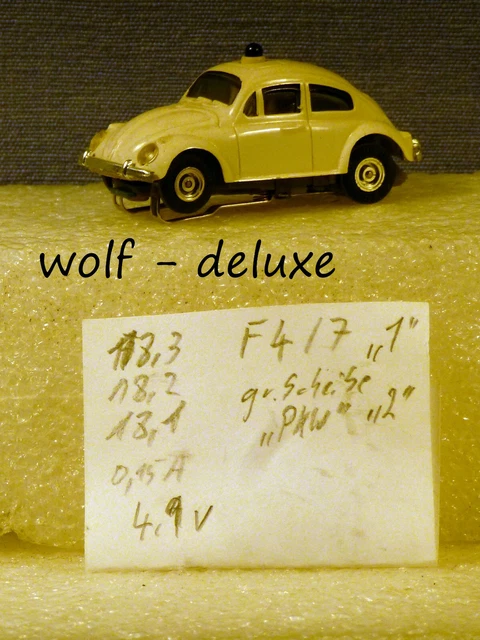 wolf - deluxe
18,3
18,2
18,1
0,15 A
4,9 V
F4 / 7 „1"
gr. Scheibe
„PKW" „2"